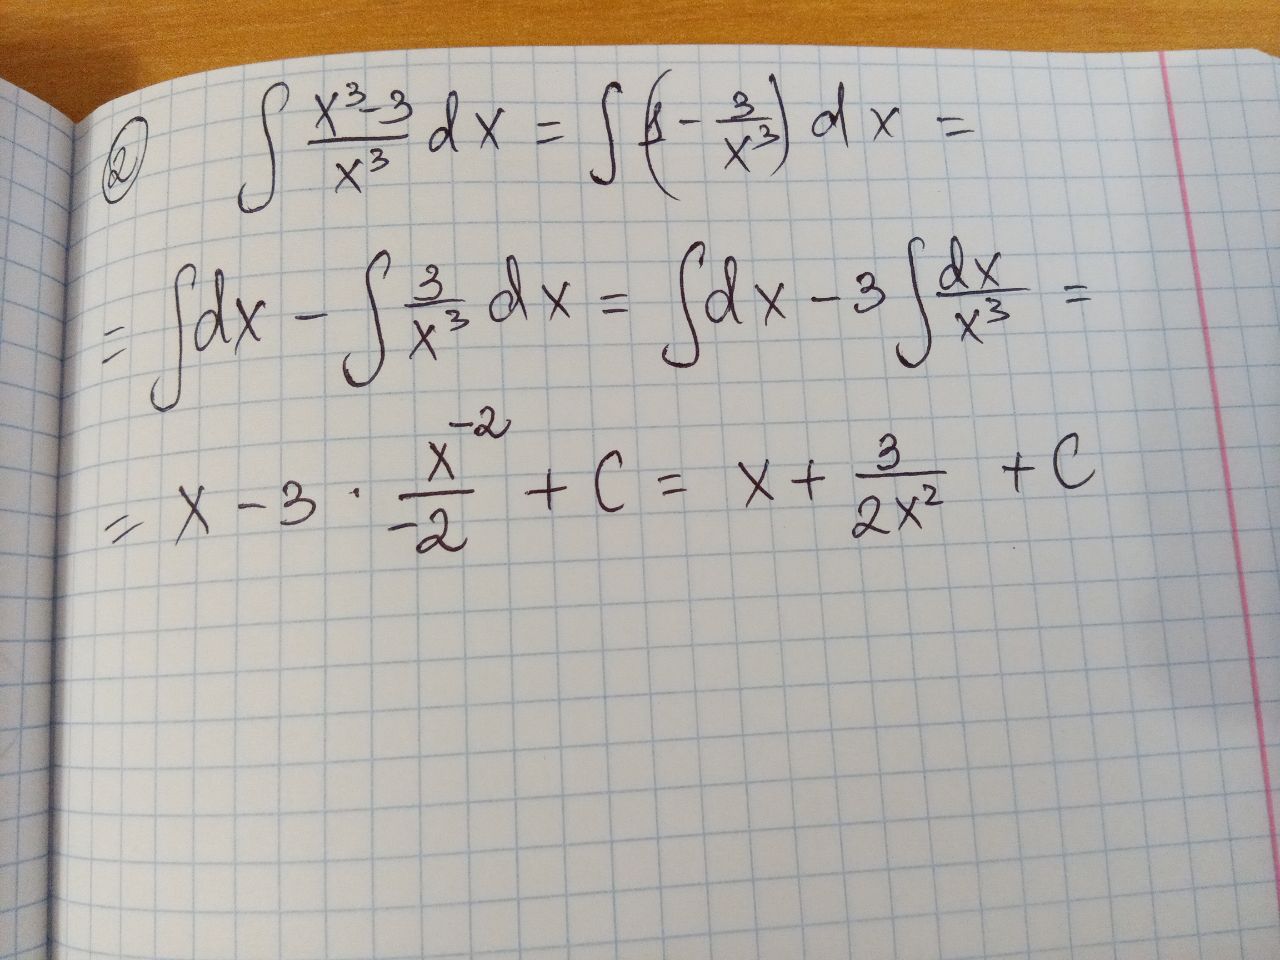 ② ∫ (x³-3)/x³ dx = ∫ (1 - 3/x³) dx =
= ∫ dx - ∫ 3/x³ dx = ∫ dx - 3 ∫ dx/x³ =
= x - 3 · x⁻²/-2 + C = x + 3/2x² + C